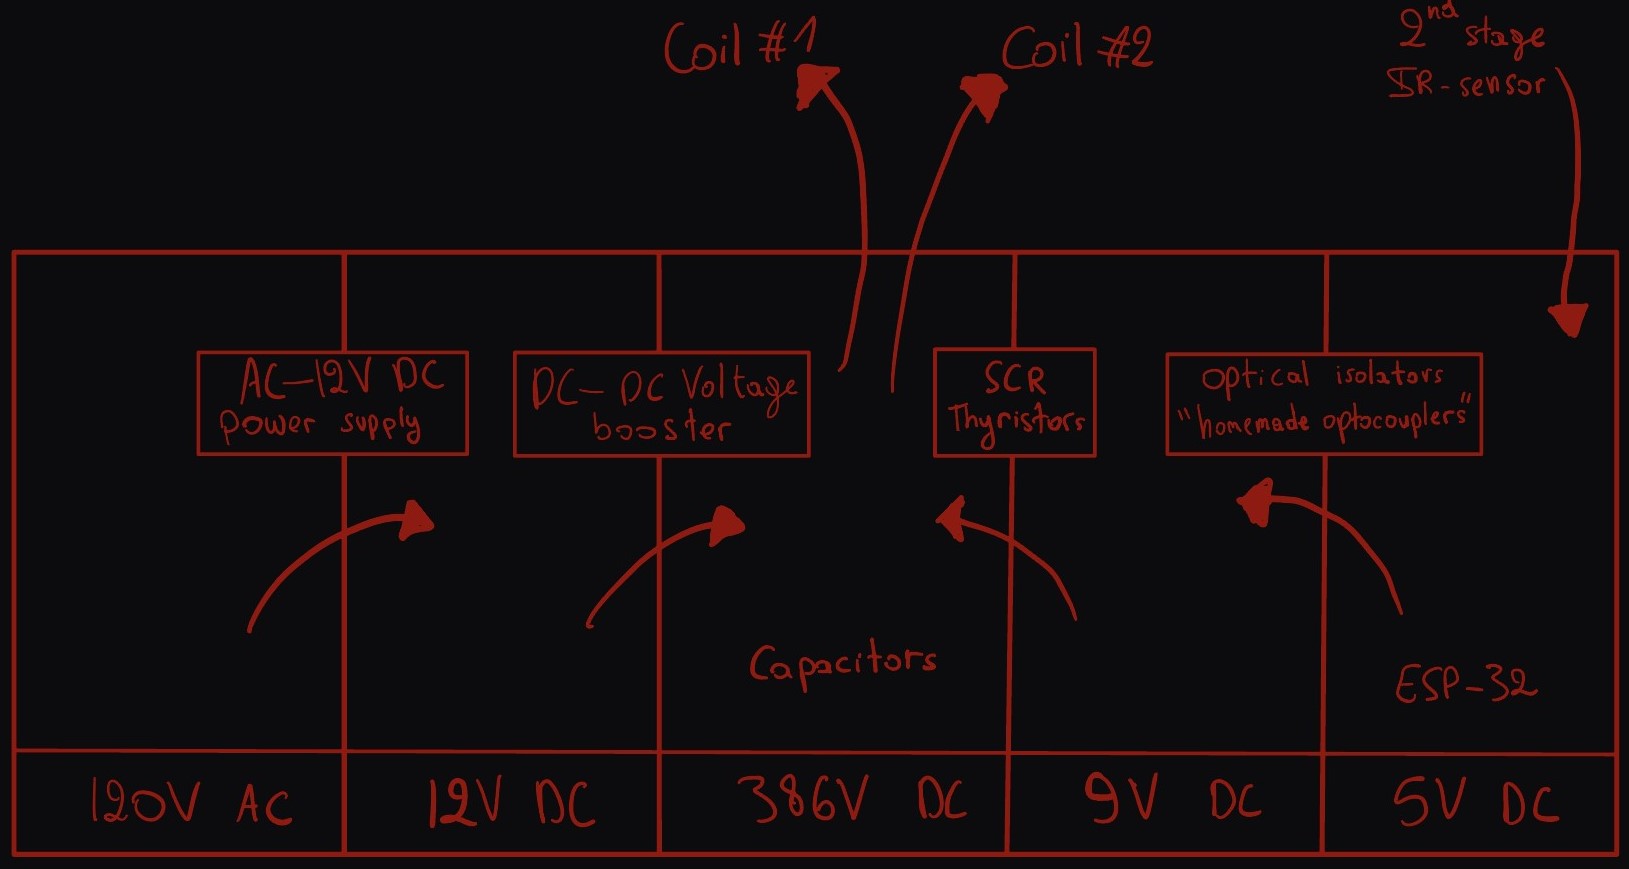 Coil #1
Coil #2
2nd stage
IR-sensor
AC-12V DC
power supply
DC-DC Voltage
booster
SCR
Thyristors
optical isolators
"homemade optocouplers"
Capacitors
ESP-32
120V AC
12V DC
386V DC
9V DC
5V DC